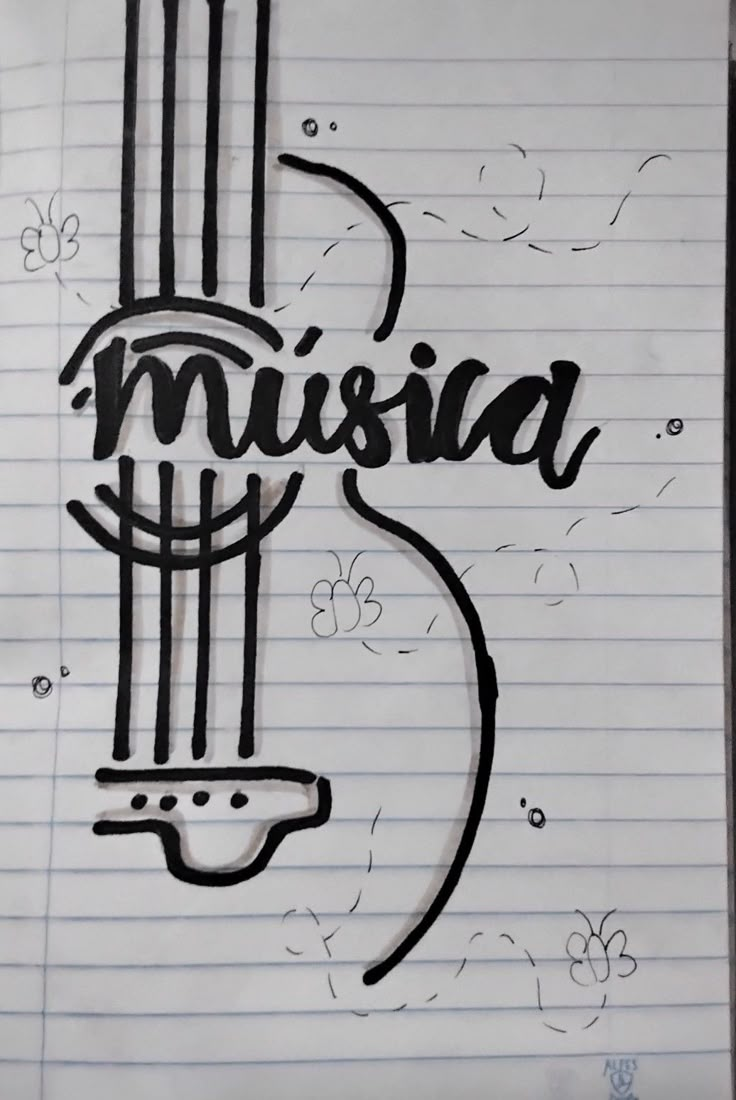 música
ALPES